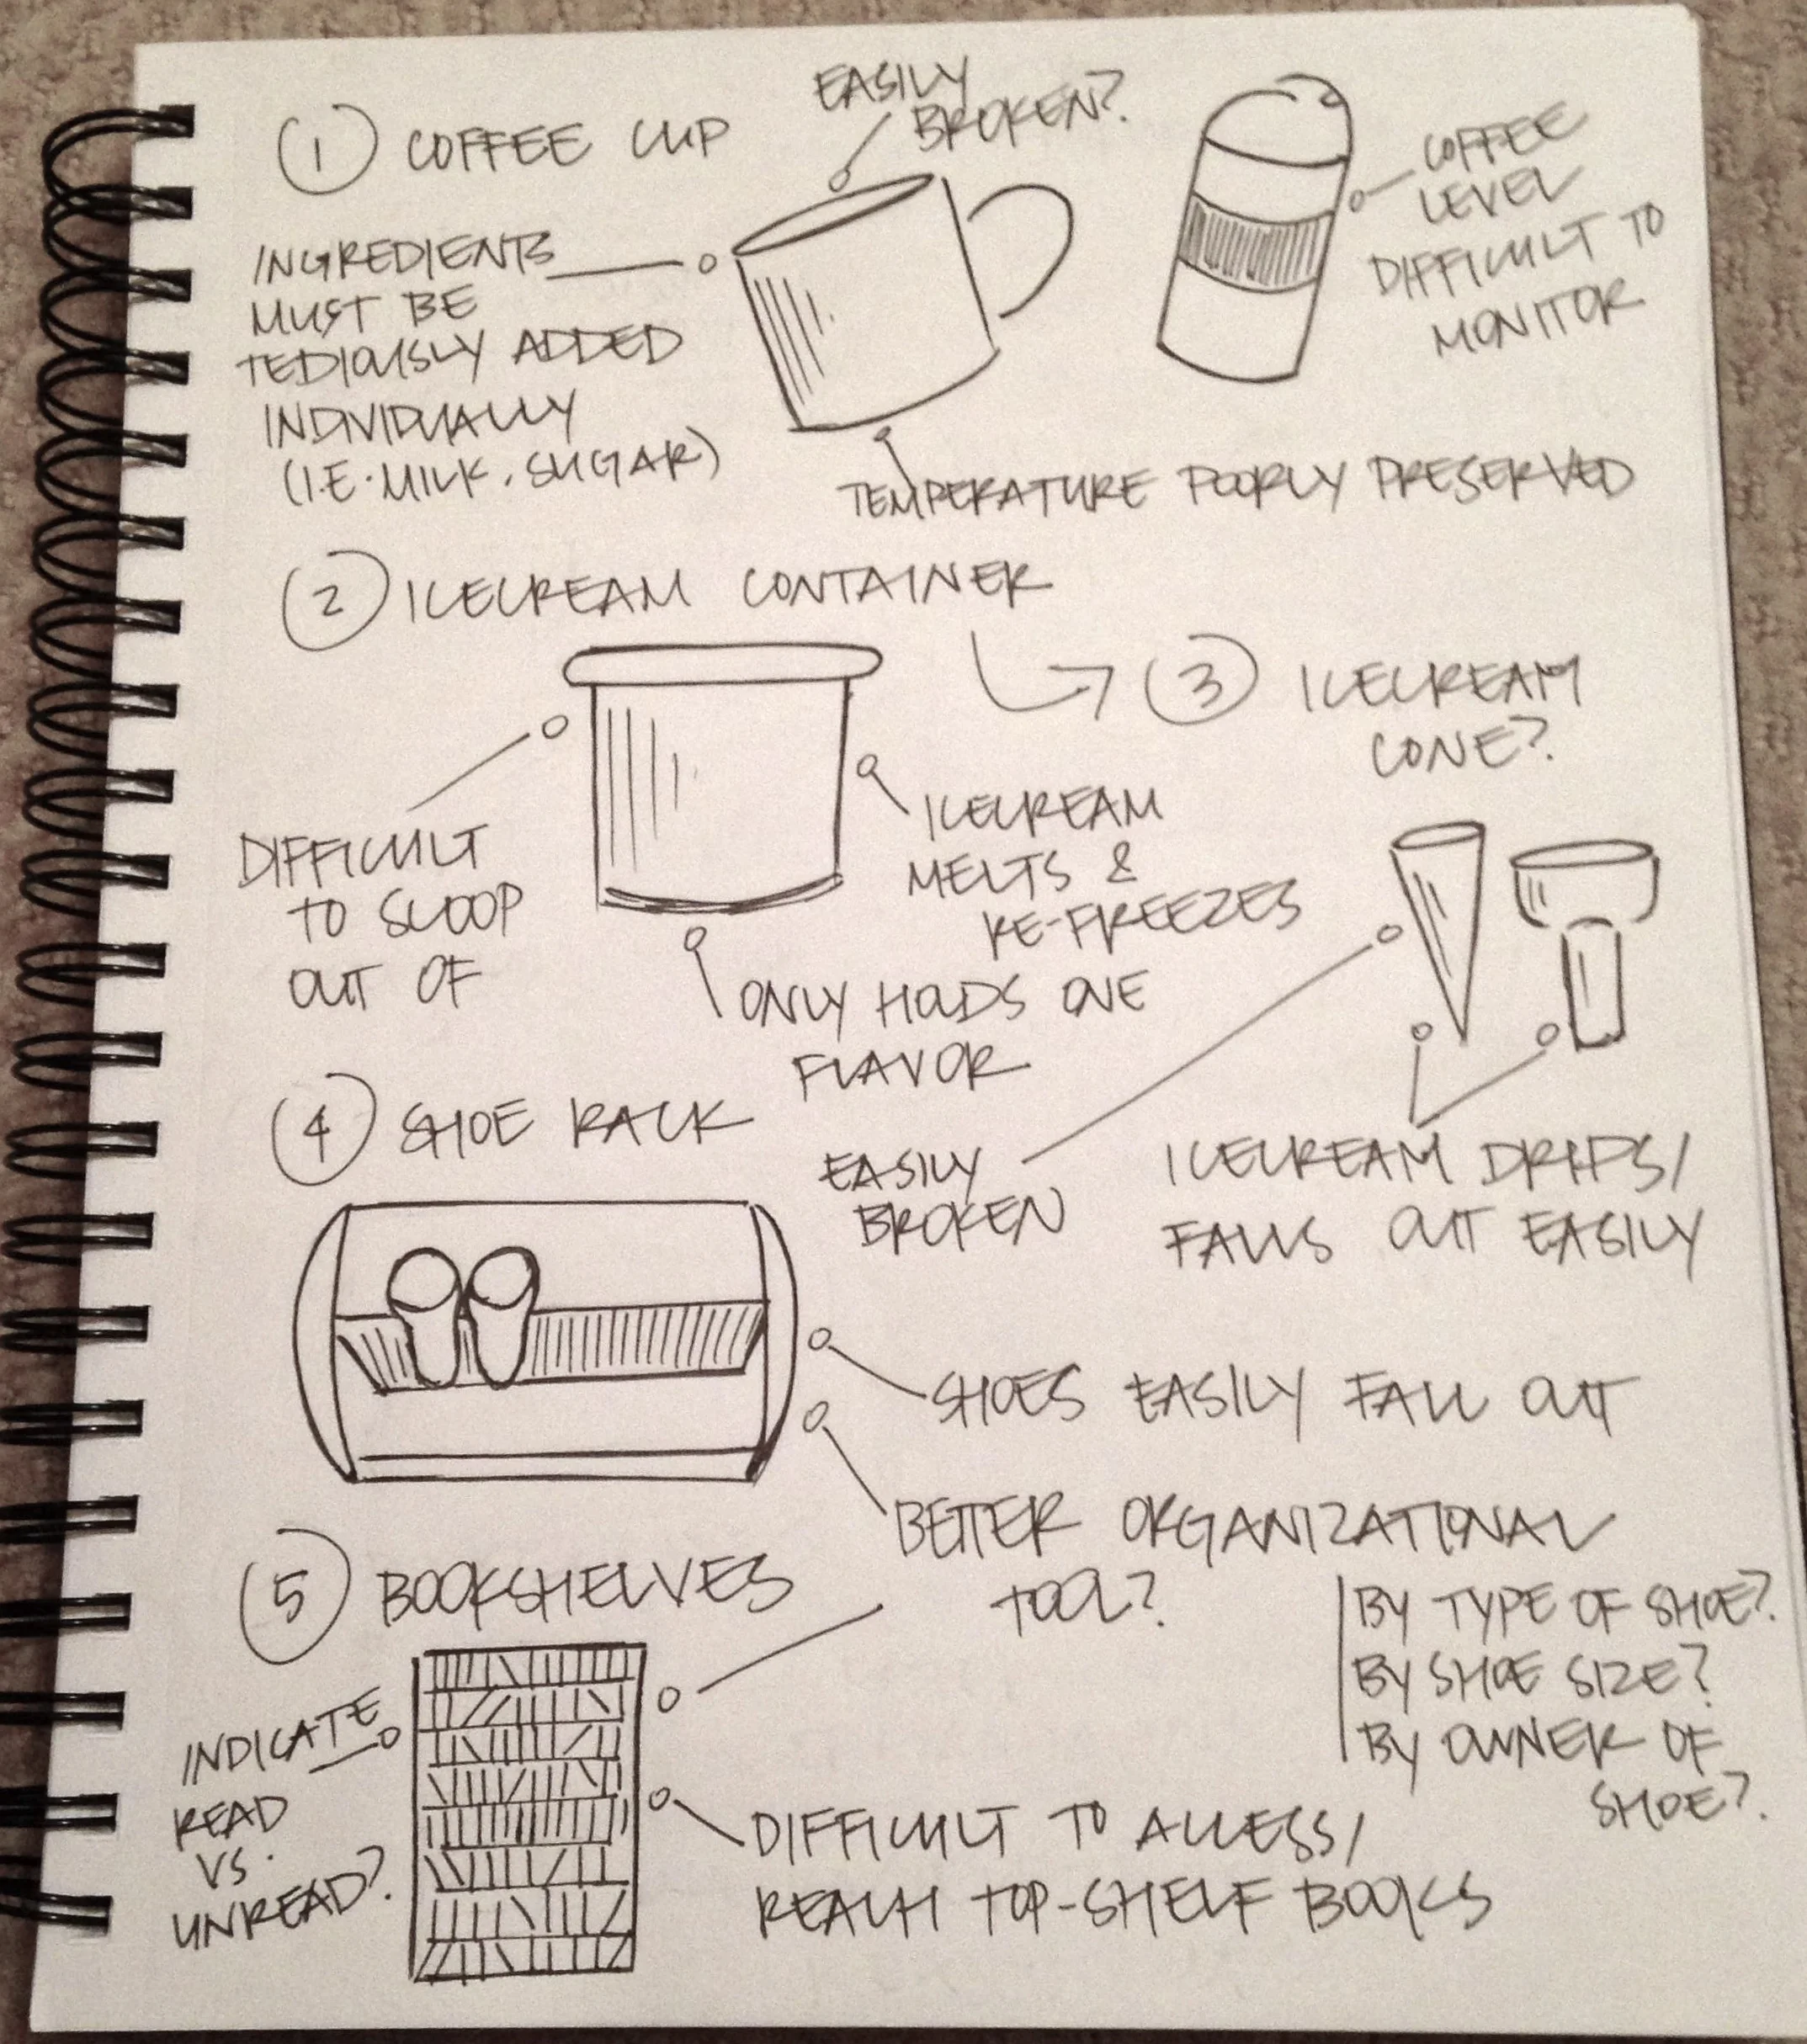 1 COFFEE CUP
EASILY
BROKEN?
INGREDIENTS
MUST BE
TEDIOUSLY ADDED
INDIVIDUALLY
(I.E. MILK, SUGAR)
COFFEE
LEVEL
DIFFICULT TO
MONITOR
TEMPERATURE POORLY PRESERVED
2 ICECREAM CONTAINER
DIFFICULT
TO SCOOP
OUT OF
ICECREAM
MELTS &
RE-FREEZES
ONLY HOLDS ONE
FLAVOR
3 ICECREAM
CONE?
EASILY
BROKEN
ICECREAM DRIPS/
FALLS OUT EASILY
4 SHOE RACK
SHOES EASILY FALL OUT
BETTER ORGANIZATIONAL
TOOL?
BY TYPE OF SHOE?
BY SHOE SIZE?
BY OWNER OF
SHOE?
5 BOOKSHELVES
INDICATE
READ
VS.
UNREAD?
DIFFICULT TO ACCESS/
REACH TOP-SHELF BOOKS